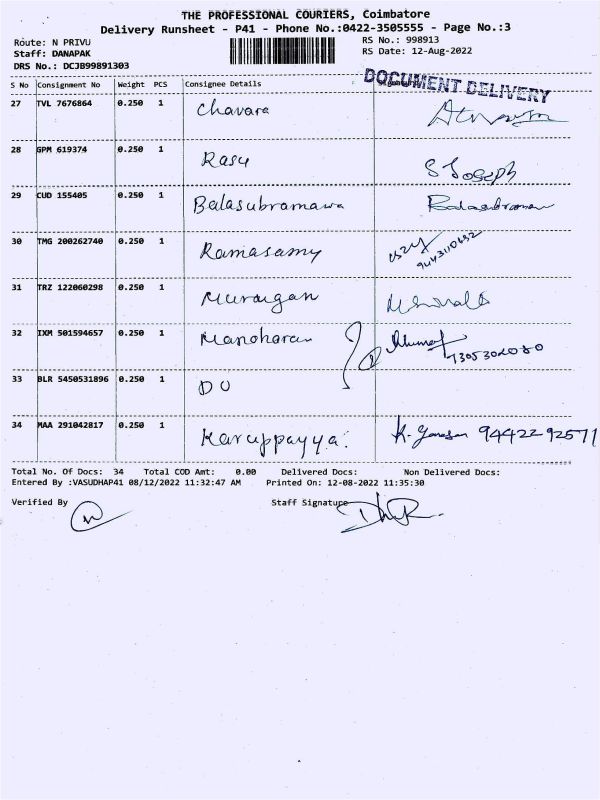 THE PROFESSIONAL COURIERS, Coimbatore
Delivery Runsheet - P41 - Phone No.:0422-3505555 - Page No.:3
Route: N PRIVU RS No.: 998913
Staff: DANAPAK RS Date: 12-Aug-2022
DRS No.: DCJB99891303
DOCUMENT DELIVERY
S No Consignment No Weight PCS Consignee Details
27 TVL 7676864 0.250 1 Chavara
28 GPM 619374 0.250 1 Rasu S Joseph
29 CUD 155405 0.250 1 Balasubramawa
30 TMG 200262740 0.250 1 Ramasamy
31 TRZ 122060298 0.250 1 Murugan
32 IXM 501594657 0.250 1 Manoharan
33 BLR 5450531896 0.250 1 DO
34 MAA 291042817 0.250 1 Karuppayya. 94422 92571
Total No. Of Docs: 34 Total COD Amt: 0.00 Delivered Docs: Non Delivered Docs:
Entered By :VASUDHAP41 08/12/2022 11:32:47 AM Printed On: 12-08-2022 11:35:30
Verified By Staff Signature